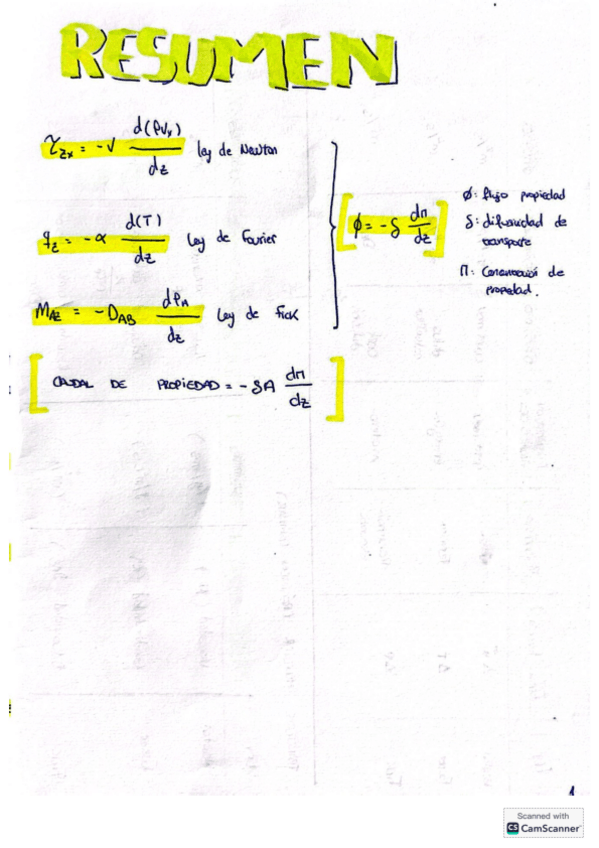 RESUMEN
τzx = -ν d(ρvx)/dz ley de Newton
qz = -α d(T)/dz ley de Fourier
MAz = -DAB dρA/dz ley de Fick
[ϕ = -δ dπ/dz]
ϕ: flujo propiedad
δ: difusividad de transporte
π: Concentración de propiedad.
[CAUDAL DE PROPIEDAD = -δA dπ/dz]
1
Scanned with
CS CamScanner